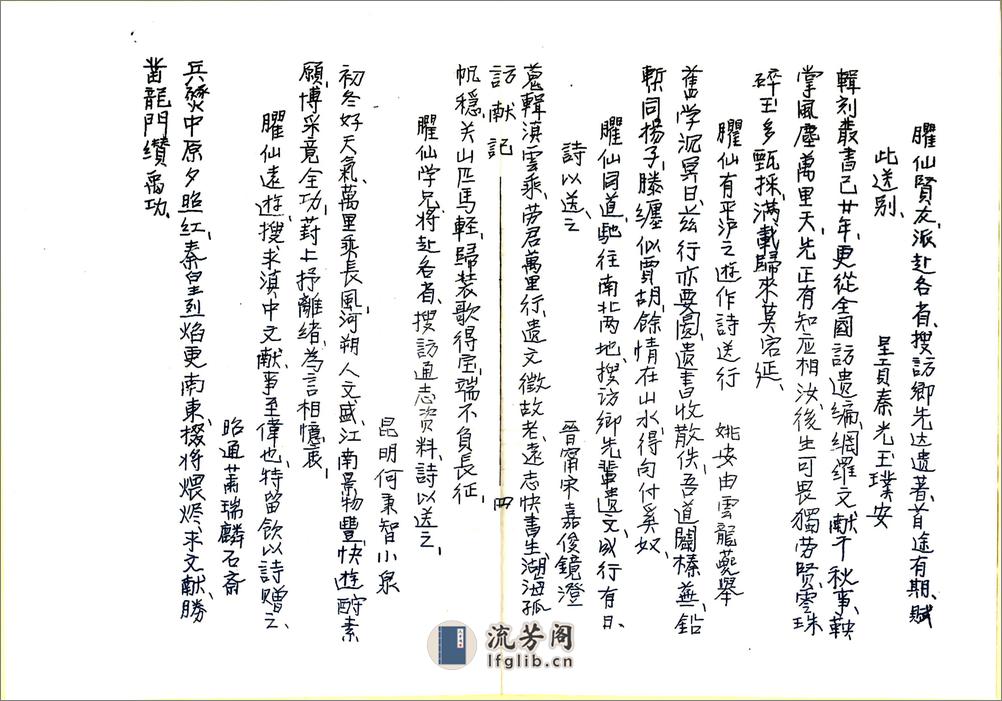 臞仙賢友、派赴各省、搜訪鄉先达遗著、首途有期、賦
此送别、
呈貢秦光玉璞安
輯刻叢書已廿年、更從全國訪遺編、網羅文献千秋事、鞅
掌風塵萬里天、先正有知应相汝、後生可畏獨劳賢、零珠
碎玉多甄採、滿載歸來莫宕延、
臞仙有平沪之遊作詩送行
姚安由雲龍夔舉
舊学沉冥日、兹行亦要圖、遺書收散佚、吾道闢榛蕪、鉛
槧同楊子、滕纏似賈胡、餘情在山水、得句付奚奴、
臞仙同道、馳往南北两地、搜访鄉先輩遗文、成行有日、
詩以送之
晉甯宋嘉俊鏡澄
蒐輯滇雲乘、劳君萬里行、遺文徵故老、遠志快書生、湖海孤
訪献記
四
帆穩、关山匹馬輕、歸装歌得宝、端不負長征、
臞仙学兄、将赴各省、搜訪通志資料、詩以送之、
昆明何秉智小泉
初冬好天氣、萬里乘長風、河朔人文盛、江南景物豐、快遊酧素
願、博采竟全功、葑上抒離緒、為言相憶衷、
臞仙遠遊、搜求滇中文献、事至偉也、特留飲以詩贈之、
昭通蕭瑞麟石斎
兵燹中原夕照紅、秦皇烈焰更南東、掇将煨烬求文献、勝
凿龍門纘禹功、
流芳阁
lfglib.cn